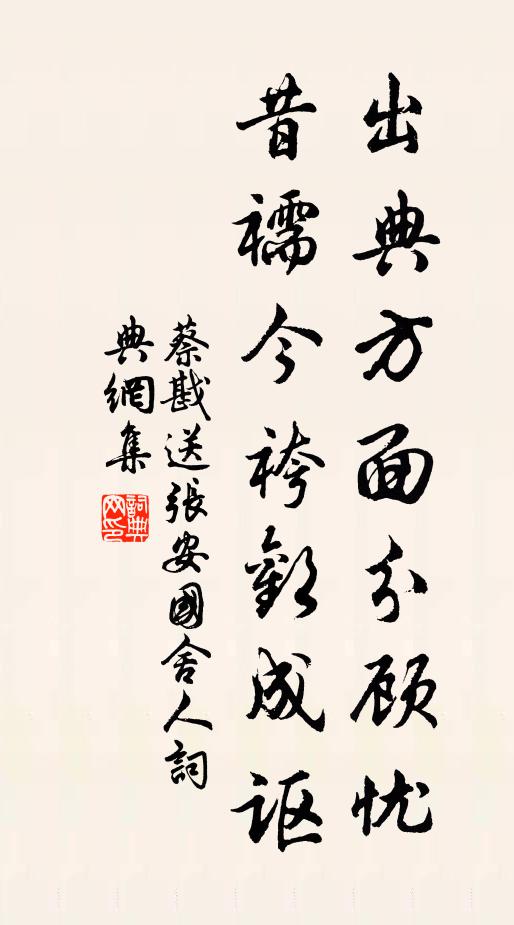 出典方面分顾忧
昔襦今袴歡成讴
蔡戡送張安國舍人詞
典網集
詞典
网印